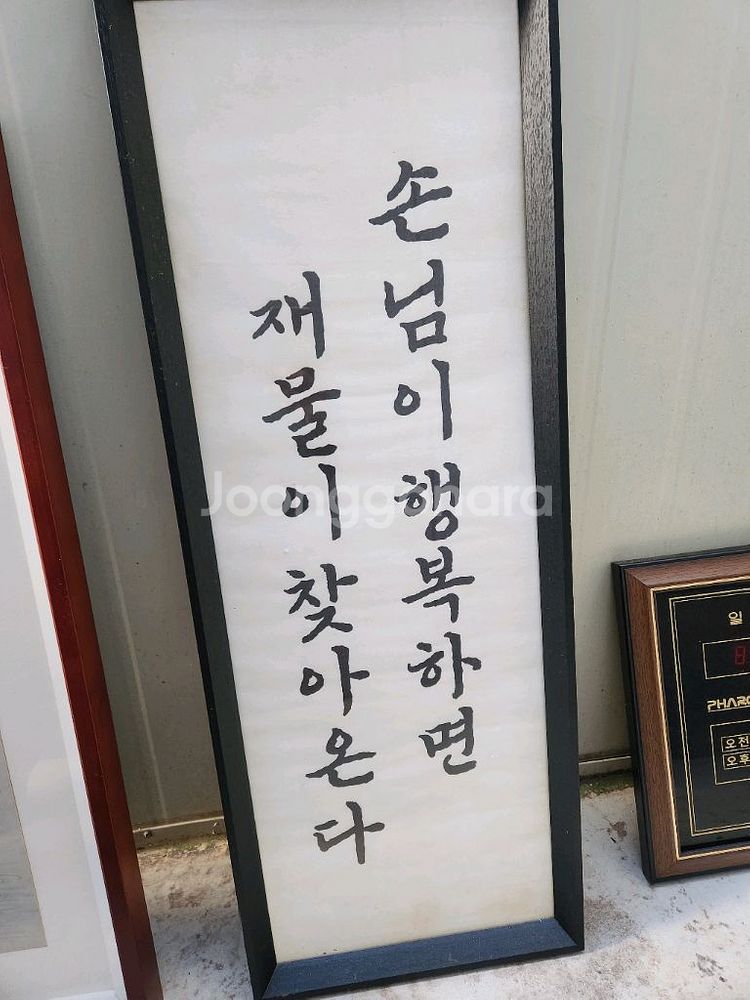 손님이행복하면
재물이찾아온다
Joonggonara
일
PHARO
오전
오후